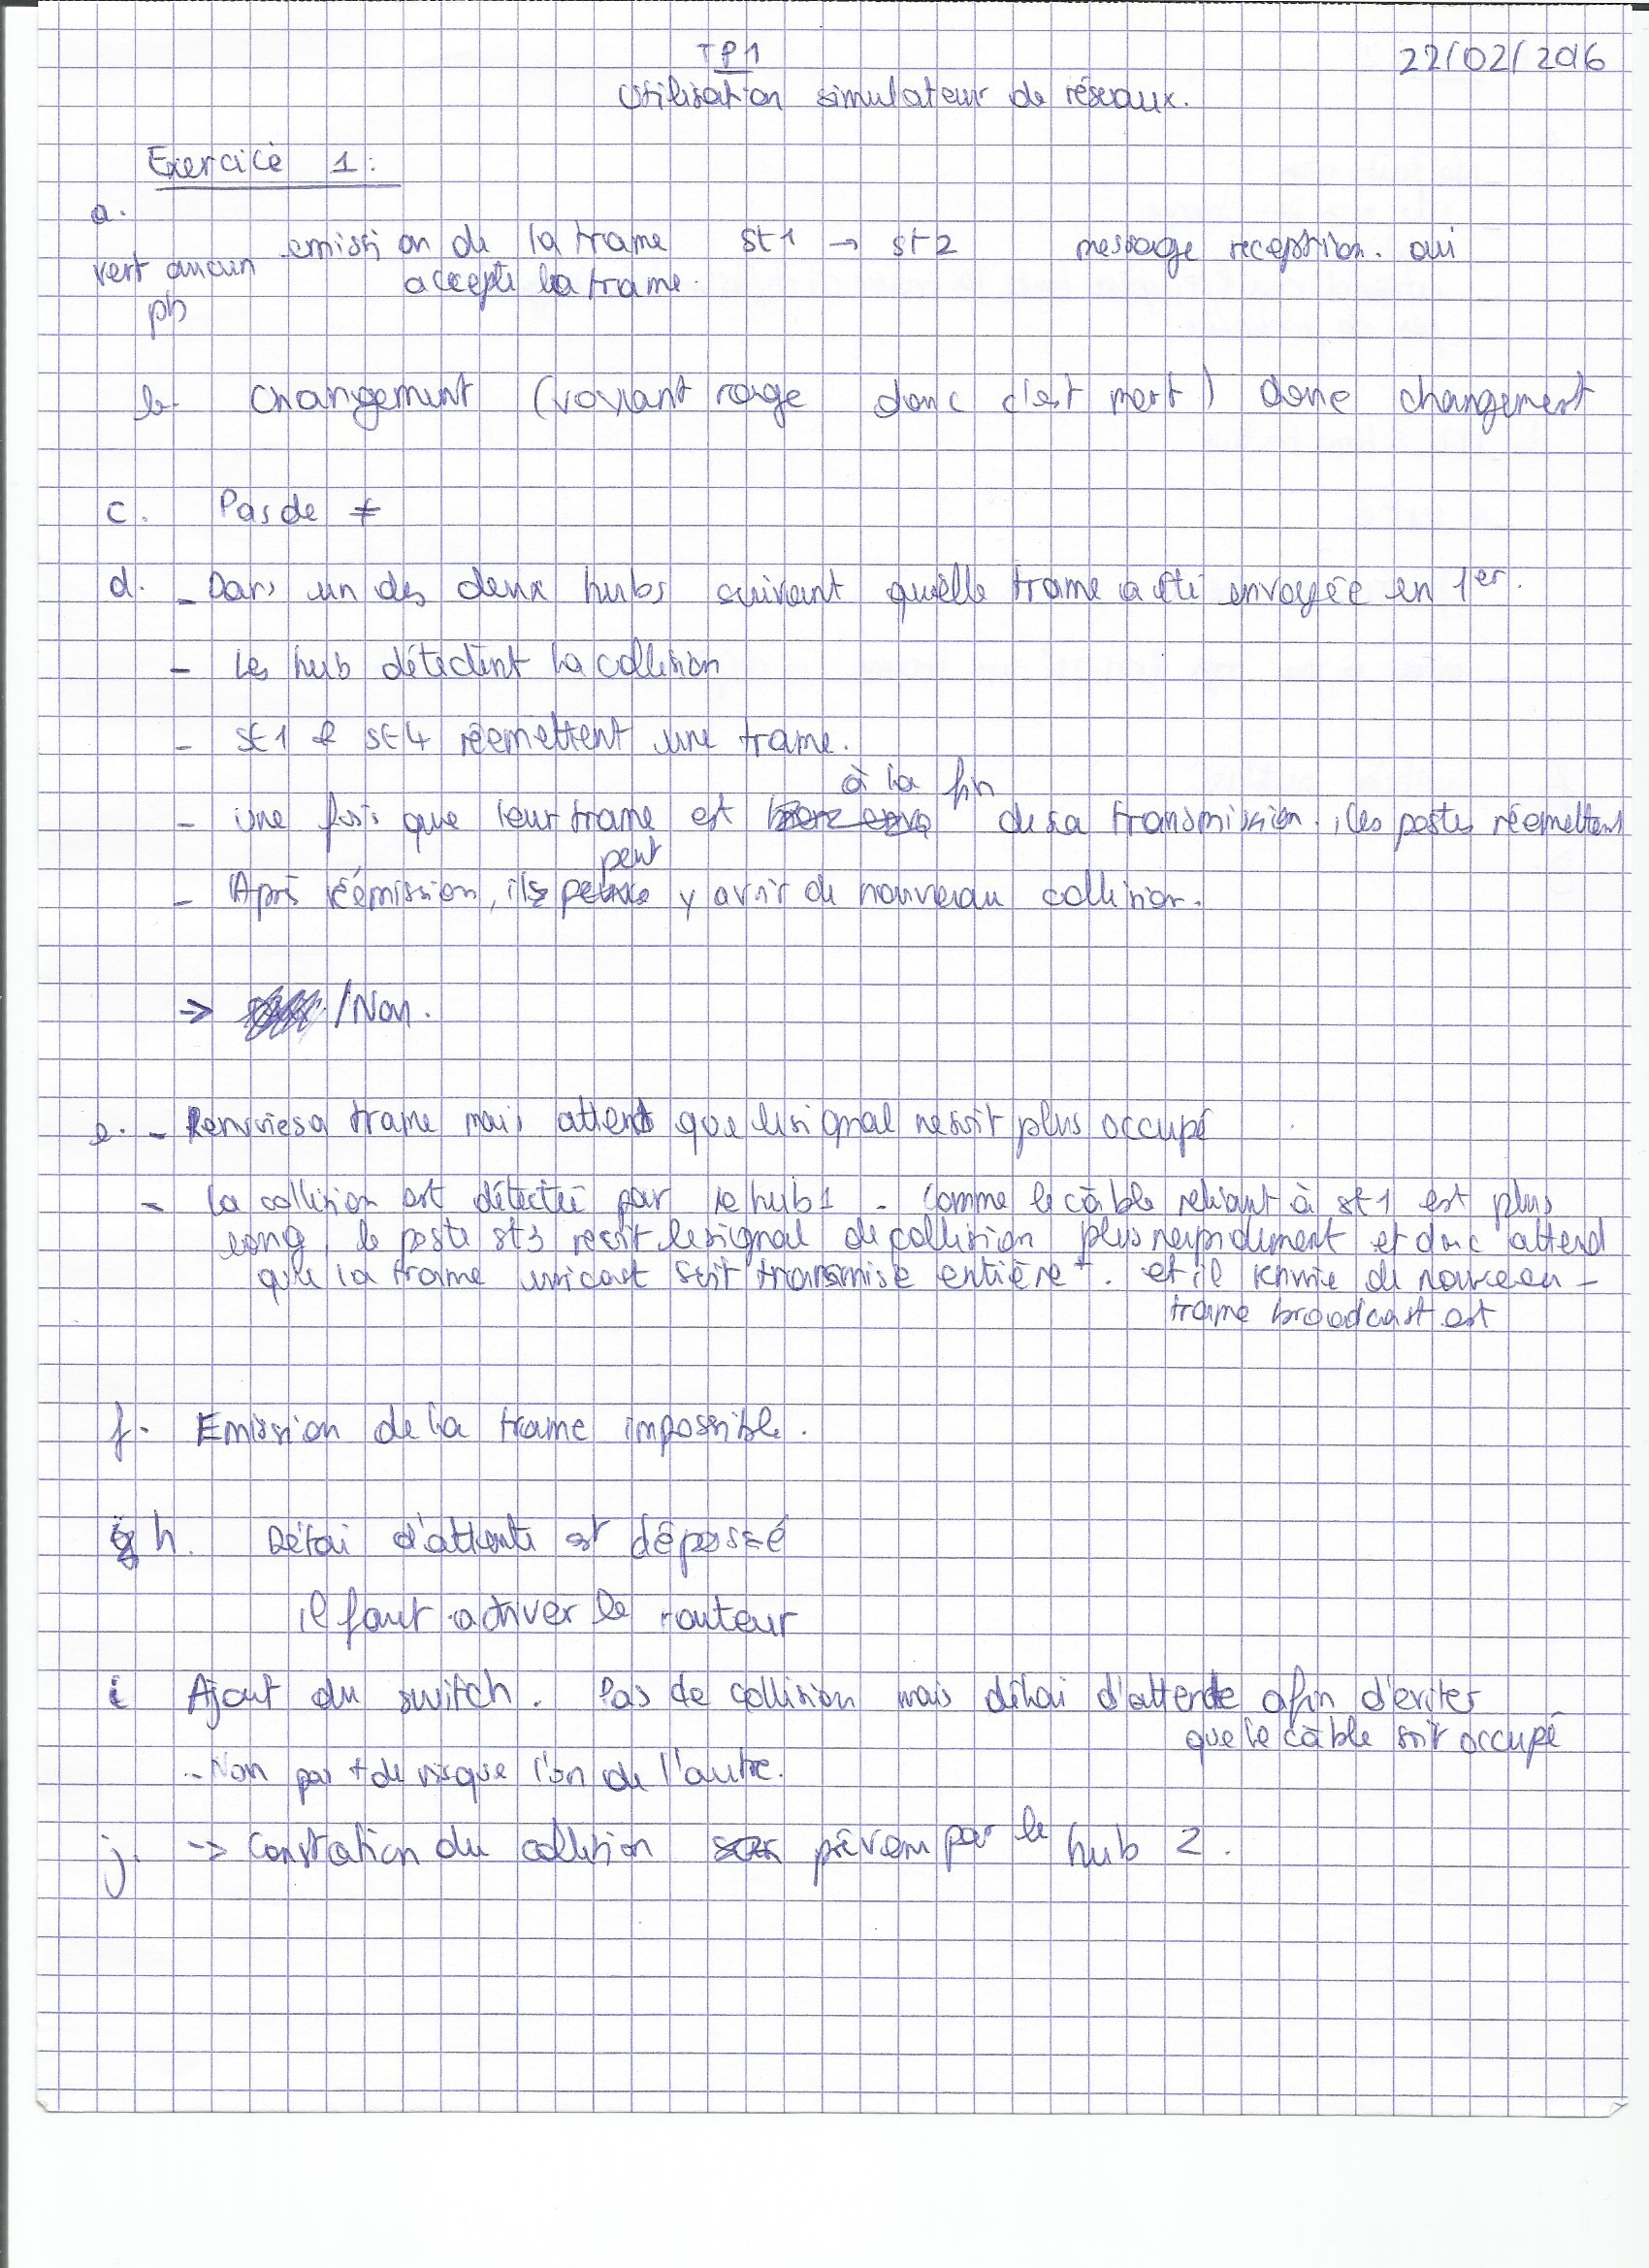 TP1
22/02/2016
Utilisation simulateur de réseaux.
Exercice 1:
a.
emission de la trame st1 → st2 message reception. oui
vert aucun accepte la trame.
pb
b- changement (voyant rouge donc c'est mort) donc changement
c. Pas de ≠
d. - Dans un des deux hubs suivant quelle trame a été envoyée en 1er.
- Les hub détectent la collision
- st1 & st4 réemettent une trame.
à la fin
- une fois que leur trame est de sa transmission, les postes réemettent
peut
- Après réémission, il y avoir de nouveau collision.
→ /Non.
e. - Renvoie sa trame mais attend que le signal ne soit plus occupé
- la collision est détectée par le hub1 - Comme le câble reliant à st1 est plus
long, le poste st3 reçoit le signal de collision plus rapidement et donc attend
que la trame unicast soit transmise entière t. et il renvoie de nouveau -
trame broadcast est
f. Emission de la trame impossible.
g h. Délai d'attente est dépassé
il faut activer le routeur
i Ajout du switch. Pas de collision mais délai d'attente afin d'eviter
que le câble soit occupé
- Non pas + de risque l'on de l'autre.
j. → Constation du collision prévenu par le hub 2.